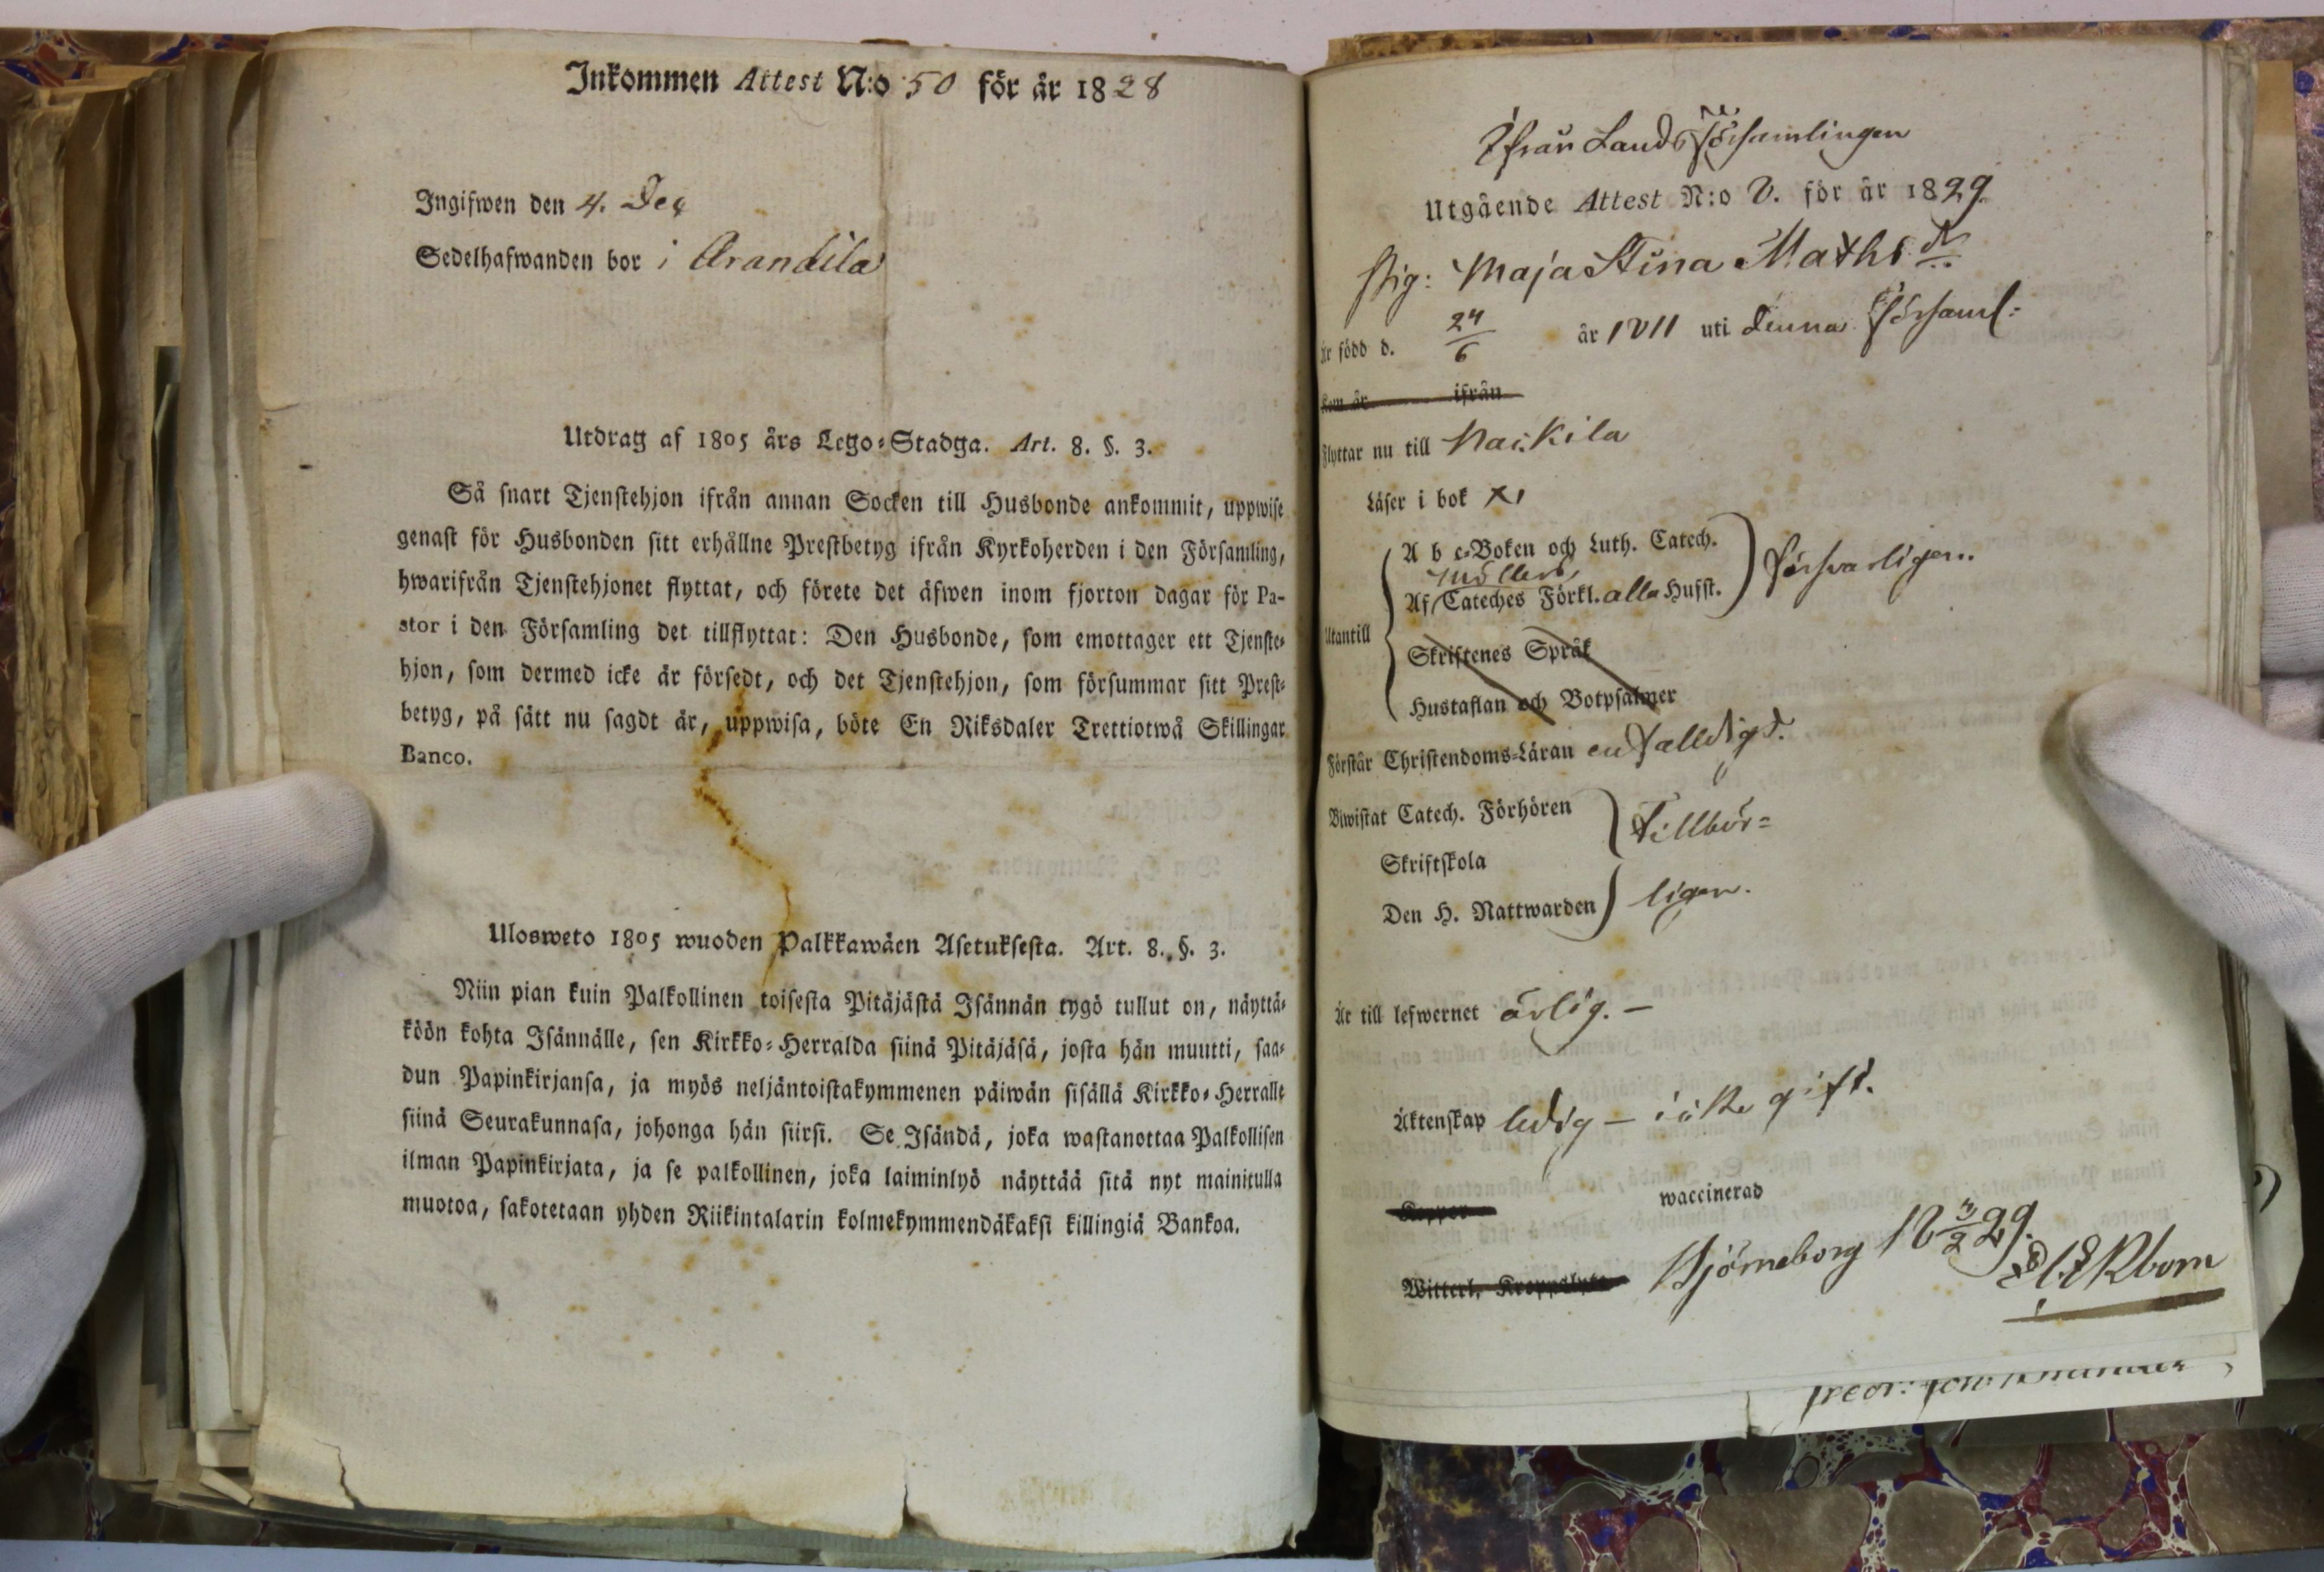 Inkommen Attest N:o 50 för år 1828
Ingifwen den 4. Dec
Sedelhafwanden bor i Arandila
Utdrag af 1805 års Lego-Stadga. Art. 8. §. 3.
Så snart Tjenstehjon ifrån annan Socken till Husbonde ankommit, uppwise
genast för Husbonden sitt erhållne Prestbetyg ifrån Kyrkoherden i den Församling,
hwarifrån Tjenstehjonet flyttat, och förete det äfwen inom fjorton dagar för Pa-
stor i den Församling det tillflyttat: Den Husbonde, som emottager ett Tjenste-
hjon, som dermed icke är försedt, och det Tjenstehjon, som försummar sitt Prest-
betyg, på sätt nu sagdt är, uppwisa, böte En Riksdaler Trettiotwå Skillingar
Banco.
Ulosweto 1805 wuoden Palkkawäen Asetuksesta. Art. 8. §. 3.
Niin pian kuin Palkollinen toisesta Pitäjästä Isännän tygö tullut on, näyttä-
köön kohta Isännälle, sen Kirkko-Herralda siinä Pitäjäsä, josta hän muutti, saa-
dun Papinkirjansa, ja myös neljäntoistakymmenen päiwän sisällä Kirkko-Herralle
siinä Seurakunnasa, johonga hän siirsi. Se Isändä, joka wastanottaa Palkollisen
ilman Papinkirjata, ja se palkollinen, joka laiminlyö näyttää sitä nyt mainitulla
muotoa, sakotetaan yhden Riikintalarin kolmekymmendäkaksi killingiä Bankoa.
Ifrån Lands församlingen
Utgående Attest N:o 8. för år 1829.
Pig: Maja Stina Mathsdr
Är född d. 24/6 år 1811 uti denna Församl:
Kom år ifrån
Flyttar nu till Nackila
Läser i bok
Utantill
A b c-Boken och Luth. Catech.
Möllers
Af Cateches Förkl. alla Hufst.
försvarligen.
Skriftenes Språk
Hustaflan och Botpsalmer
Förstår Christendoms-Läran enfalldigt.
Biwistat Catech. Förhören
Tillbör-
Skriftskola
Den H. Nattwarden ligen.
Är till lefwernet ärlig. —
Äktenskap ledig — icke gift.
Koppor
waccinerad
Witterl. Björneborg 18 3/2 29.
Ekbom